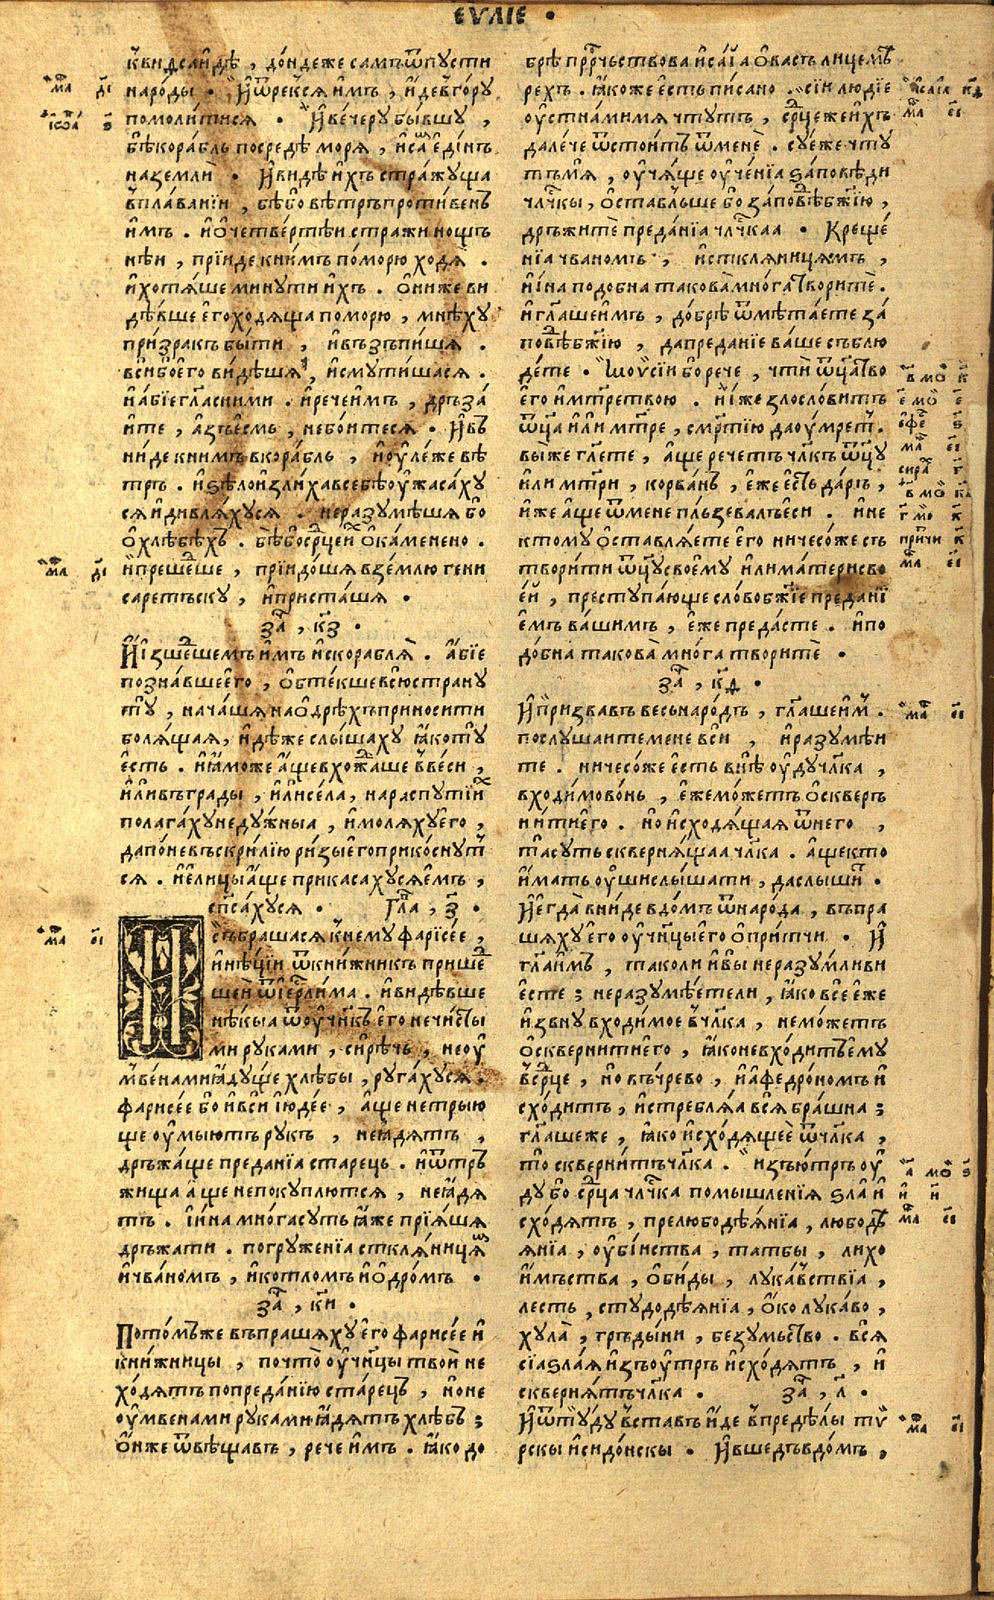 ЕѴЛІЕ
къ видсаидѣ , дондеже самъ ѿпусти
народы . И ѿрекся имъ , иде въ гору
помолитися . И вечеру бывшу ,
бѣ корабль посредѣ моря , и самъ единъ
на земли . И видѣ ихъ стражуща
в плаваніи , бѣ бо вѣтръ противенъ
имъ . и о четвертѣи стражи нощ
нѣи , пріиде к нимъ по морю ходя .
и хотяше минути ихъ . они же ви
дѣвше его ходяща по морю , мнѣху
призракъ быти , и възъпишя .
вси бо его видѣшя , и смутишася .
и абіе гла с ними . и рече имъ , дръза
ите , азъ есмь , не боитеся . И въ
ниде к нимъ в корабль , и улеже вѣ
тръ . и ѕѣло излиха в себѣ ужасаху
ся и дивляхуся . не разумѣшя бо
о хлѣбѣхъ . бѣ бо срце ихъ окаменено .
и прешедше , пріидошя в землю гени
саретъску , и присташя .
за , кз .
И изшедшемъ имъ ис корабля . абіе
познавше его , обтекше всю страну
ту , начашя на одрѣхъ приносити
болящая , идѣже слышаху яко ту
есть . и яможе аще вхождаше в веси ,
или въ грады , или села , на распутіих
полагаху недужныа , и моляху его ,
да поне въскрилію ризы его прикоснут
ся . и елицы аще прикасахуся емъ ,
спсахуся . Гла , з .
И събрашася к нему фарісее ,
и нѣціи ѿ книжникъ прише
шеи ѿ іерлима . и видѣвше
нѣкыа ѿ учнкъ его нечисты
ми руками , сирѣчь , неу
мвенами ядуще хлѣбы , ругахуся .
фарисее бо и вси іюдее , аще не трыю
ще умыютъ рукъ , не ядятъ ,
дръжаще преданіа старець . и ѿ тръ
жища аще не покуплются , не ядя
тъ . и ина многа суть яже пріяшя
дръжати . погруженіа сткляницам
и чваномъ , и котломъ и одромъ .
за , ки .
Потом же въпрашяху его фарисее и
книжницы , почто учнцы твои не
ходятъ по преданію старецъ , и оне
умвенами руками ядятъ хлѣбъ ;
Он же ѿвѣщавъ , рече имъ . яко до
брѣ прорчьствова исаіа о васъ лицемѣ
рехъ . якоже есть писано . сіи людіе
устнами мя чтутъ , срце же ихъ
далече ѿстоитъ ѿ мене . суе же чту
тъ мя , учяще ученіа ѕаповѣди
члчкы , оставльше бо заповѣд бжію ,
дръжите преданіа члчкаа . Креще
ніа чваномъ , и сткляницямъ ,
и ина подобна такова многа творите .
и глаше имъ , добрѣ ѿмѣтаете за
повѣд бжію , да преданіе ваше съблю
дете . Моусіи бо рече , чти ѿца тво
его и мтрь твою . и иже злословитъ
ѿца или мтре , смртію да умрет .
вы же глете , аще речетъ члкъ ѿцу
или мтри , корванъ , еже есть даръ ,
иже аще ѿ мене пльзевалъ еси . и не
ктому оставляете его ничесоже съ
творити ѿцу своему или матери сво
еи , преступающе слово бжіе предані
емъ вашимъ , еже предасте . и по
добна такова многа творите .
за , кд .
И призвавъ весь народъ , глаше им .
послушаите мене вси , и разумѣи
те . ничесоже есть внѣ уду члка ,
входимо вонь , еже можетъ оскверъ
нити его . но исходящая ѿ него ,
та суть сквернящаа члка . аще кто
имать уши слышати , да слышит .
И егда вниде в домъ ѿ народа , въпра
шяху его учнцы его о притчи . И
гла имъ , тако ли и вы неразумливи
есте ; не разумѣете ли , яко все еже
извну входимое в члка , не можетъ
осквернити его , яко не входитъ ему
в срце , но въ чрево , и афедрономъ и
сходитъ , истребляа вся брашна ;
глаше же , яко исходящее ѿ члка ,
то сквернитъ члка . изъютръ у
ду бо срца члчка помышленія ѕла и
сходятъ , прелюбодѣянія , любодѣ
янія , убіиства , татбы , лихо
имъства , обиды , лукавствіа ,
лесть , студодѣянія , око лукаво ,
хула , гръдыни , безумьство . вся
сіа ѕлая изъутръ исходятъ , и
сквернятъ члка . за , л .
И ѿтуду вставъ иде в предѣлы ту
рскы и сидонскы . И вшедъ в домъ ,